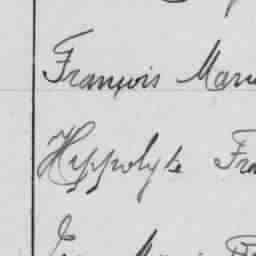 François Mari
Hyppolyte Fra